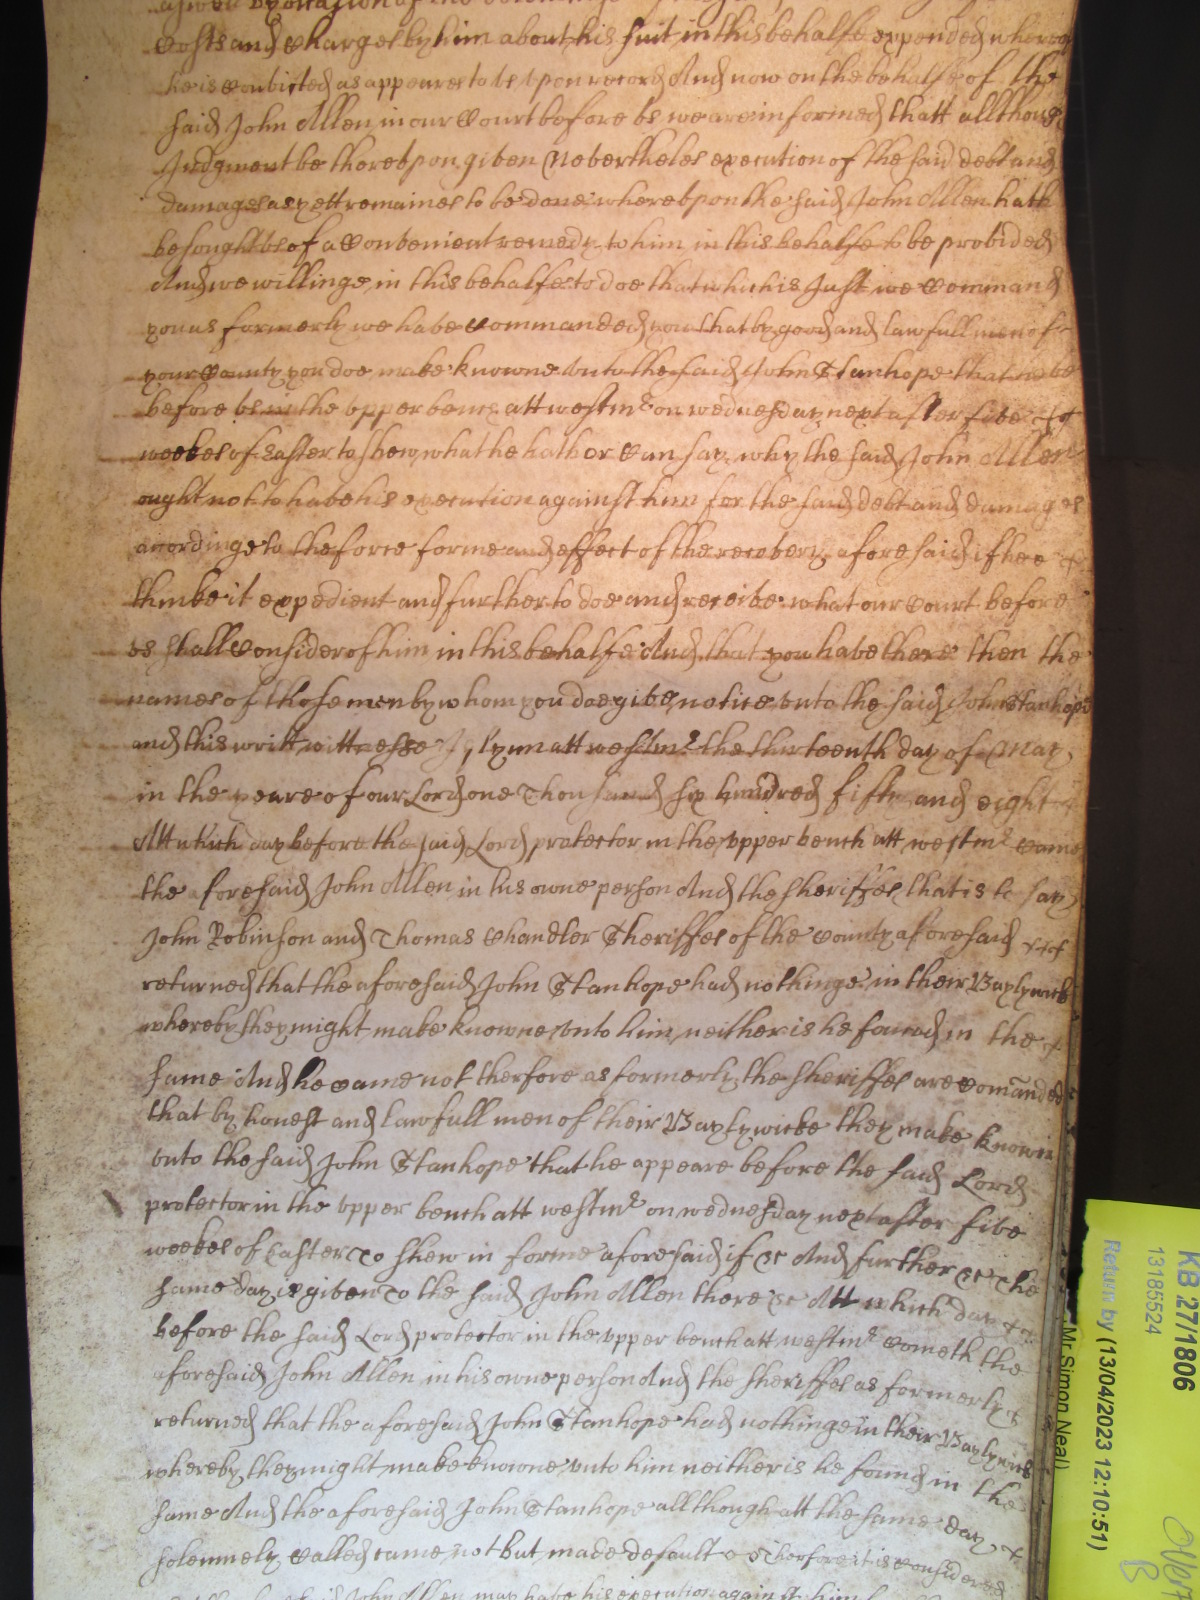 costs and charges by him about his suit in this behalfe expended whereof
he is convicted as appeares to us upon record And now on the behalfe of the
said John Allen in our Court before us we are informed thatt allthough
Judgment be thereupon given Nevertheles execution of the said debt and
damages as yett remaines to be done whereupon the said John Allen hath
besought us of a Convenient remedy to him in this behalfe to be provided
And we willinge in this behalfe to doe that which is Just we Command
you as formerly we have Commanded you that by good and lawfull men of
your County you doe make knowne unto the said John Stanhope that he be
before us in the upper bench att westmr on wednesday next after five
weekes of Easter to shew what he hath or Can say why the said John Allen
ought not to have his execution against him for the said debt and damages
accordinge to the force forme and effect of the recovery aforesaid if hee
thinke it expedient and further to doe and receive what our Court before
us shall Consider of him in this behalfe And that you have there then the
names of those men by whom you doe give notice unto the said John Stanhope
and this writt wittnesse J Glynn att westmr the thirteenth day of May
in the yeare of our Lord one Thousand six hundred fifty and eight
Att which day before the said Lord protector in the upper bench att westmr came
the foresaid John Allen in his owne person And the sheriffes that is to say
John Robinson and Thomas Chandler Sheriffes of the County aforesaid
returned that the aforesaid John Stanhope had nothinge in their Baylywick
whereby they might make knowne unto him neither is he found in the
same And he came not therfore as formerly the sheriffes are comanded
that by honest and lawfull men of their Baylywicke they make knowne
unto the said John Stanhope that he appeare before the said Lord
protector in the upper bench att westmr on wednesday next after five
weekes of Easter To shew in forme aforesaid if &c And further &c The
same day is given To the said John Allen there &c Att which day
before the said Lord protector in the upper bench att westmr cometh the
aforesaid John Allen in his owne person And the sheriffes as formerly
returned that the aforesaid John Stanhope had nothinge in their Baylywick
whereby they might make knowne unto him neither is he found in the
same And the aforesaid John Stanhope allthough att the same day
solemnely called came not but made default Therfore it is considered
John Allen may have his execution against him
KB 27/1806
13185524
Return by (13/04/2023 12:10:51)
Mr Simon Neal